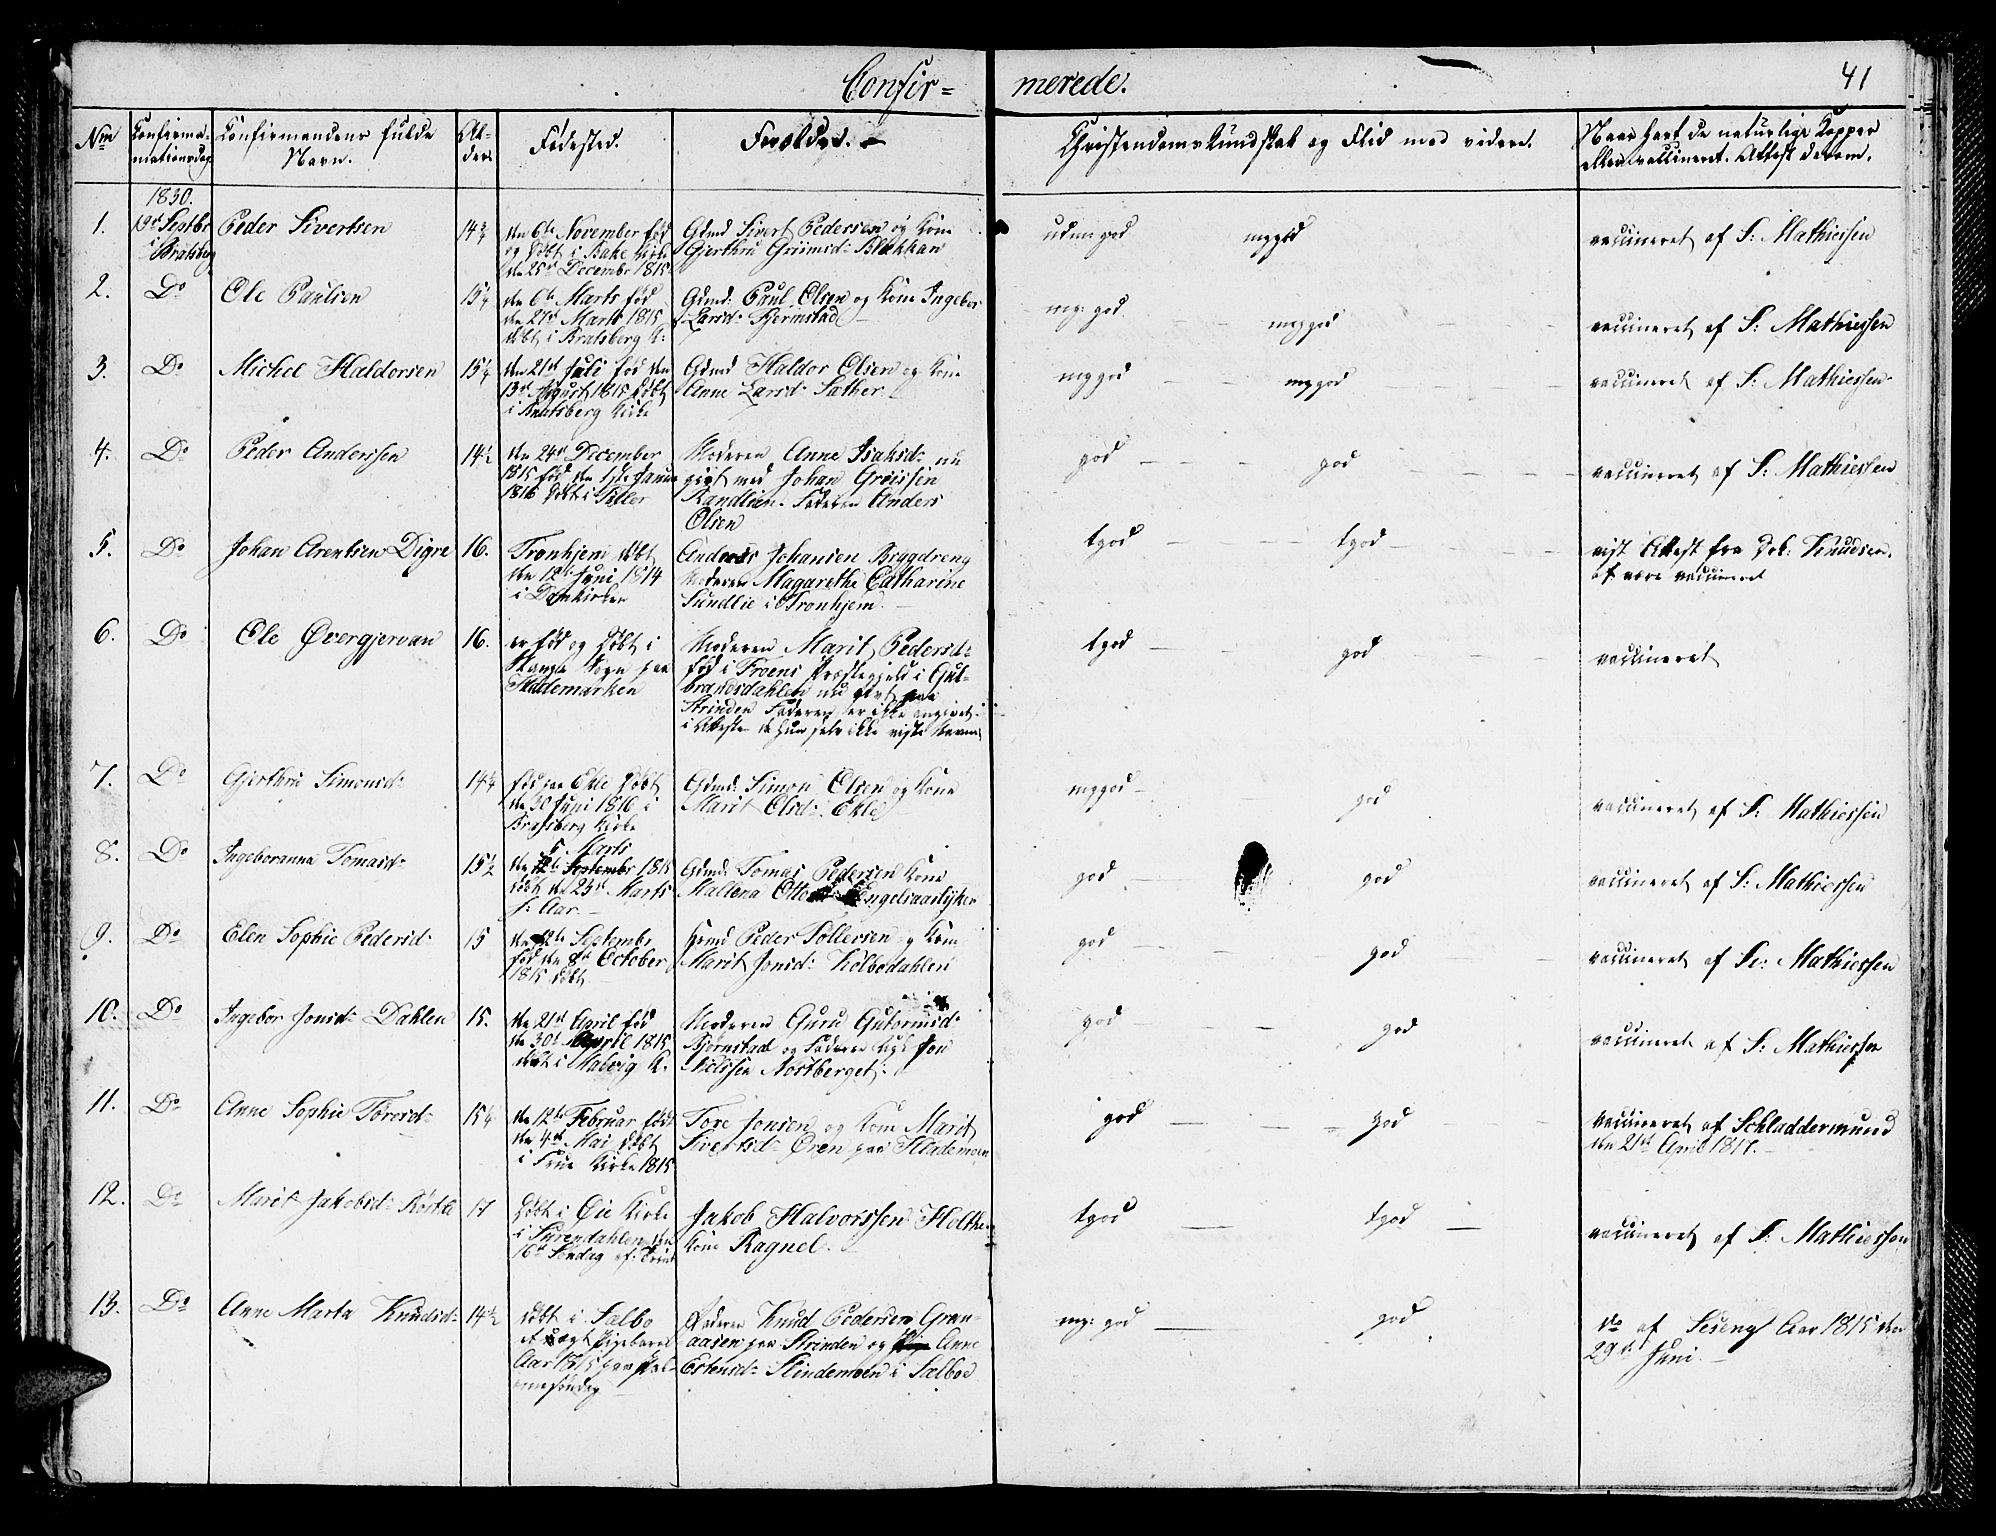 Confir=
merede.
41
Nm
Confirma-
mationsdag
Confirmandens fulde
Navn.
Al-
der.
Fødested.
Forældre.
Christendomskundskab og Flid med videre.
Naar haft de naturlige Kopper
eller vaccineret. Attest derom.
1830.
1.
19d Septbr
i
Bratsberg
Peder Sivertsen
14¾
den 6te November fød
og døbt i Bake Kirke
den 25d Decembr 1815
Gdmd Sivert Pedersen og Kone
Gjerthru Griimsd: Blakkan
udm god
mg god
vaccineret af S: Mathiessen
2.
Do
Ole Paulsen
15½
den 6te Marts fød
den 27d Marts 1815
døbt i Bratsberg K:
Gdmd: Paul Olsen og Kone Ingebor
Larsd: Bjermstad
mg: god
mg god
vaccineret af S: Mathiessen
3.
Do
Michel Haldorsen
15¼
den 21d Juli fød den
13d August 1815 døbt
i Bratsberg Kirke
Gdmd Haldor Olsen og Kone
Anne Larsd: Sather
mg god
mg god
vaccineret af S: Mathiessen
4.
Do
Peder Anderssen
14½
den 24d December
1815 fød den 1ste Januar
1816 døbt i Tiller
Moderen Anne Isaksd: nu
givt med Johan Grøissen
Randlien. Faderen Anders
Olsen
god
god
vaccineret af S: Mathiessen
5.
Do
Johan Arentsen Digre
16.
Tronhjem døbt
den 12te Juni 1814
i Domkirken
Anders Johansen Brygdreng
Moderen Magarethe Catharine
Sundlie i Tronhjem.
tgod
tgod
vist Attest fra Dok: Knudsen.
at være vaccineret
6.
Do
Ole Øvergjervan
16.
er fød og døbt i
Stange Sogn paa
Hademarken
Moderen Marit Pedersd:
fød i Froens Præstegjeld i Gul-
brandsdahlen nu givt paa
Strinden Faderen er ikke angivet
i Attesten da hun selv ikke viste Navnet
tgod
god
vaccineret
7.
Do
Gjerthru Simonsd:
14¼
fød paa Ekle døbt
den 30 Juni 1816 i
Bratsberg Kirke
Gdmd: Simon Olsen og Kone
Marit Olsd: Ekle
mg god
god
vaccineret af S: Mathiessen
8.
Do
Ingeboranna Tomasd:
15½
5 Marts
den 12te Septembr 1815
døbt den 23d Marts
s: Aar.
Gdmd: Tomas Pedersen Kone
Mallena Engelsaaslykken
god
god
vaccineret af S: Mathiessen
9.
Do
Elen Sophie Pedersd:
15
den 12te Septembr
fød den 8d October
1815 døbt
Hsmd Peder Tollersen og Kone
Marit Jonsd: Kolbodahlen
god
god
vaccineret af S: Mathiessen
10.
Do
Ingebor Jonsd: Dahlen
15.
den 21d April fød
den 30te April 1815
døbt i Malvig K.
Moderen Guru Gutormsd:
Bjørnstad og Faderen Jon
Nielssen Nostberget.
god
god
vaccineret af S: Mathiessen
11.
Do
Anne Sophie Toresd:
15½
den 12te Februar født
den 4de Mai døbt
i Frue Kirke 1815
Tore Jonsen og Kone Marit
Sivertsd: Øren paa Hlademoen
god
god
vaccineret af Schladdermund
den 21d April 1817.
12.
Do
Marit Jakobsd: Røsta
17
døbt i Øie Kirke
i Surendahlen den
16d Søndag ef: Trinit
Jakob Halvorssen Holthe
Kone Ragnel.
tgod
tgod
vaccineret af S: Mathiessen
13.
Do
Anne Marta Knudsd:
14½
døbt i Sælbo
et uægt Pigebarn
Aar 1815 paa Pal-
mesøndag
Faderen Knud Pedersen Gran-
aasen paa Strinden og Anne
Estensd: Slindemoen i Sælboe
mg: god
god
do af Seseng Aar 1815 den
29d Juni.